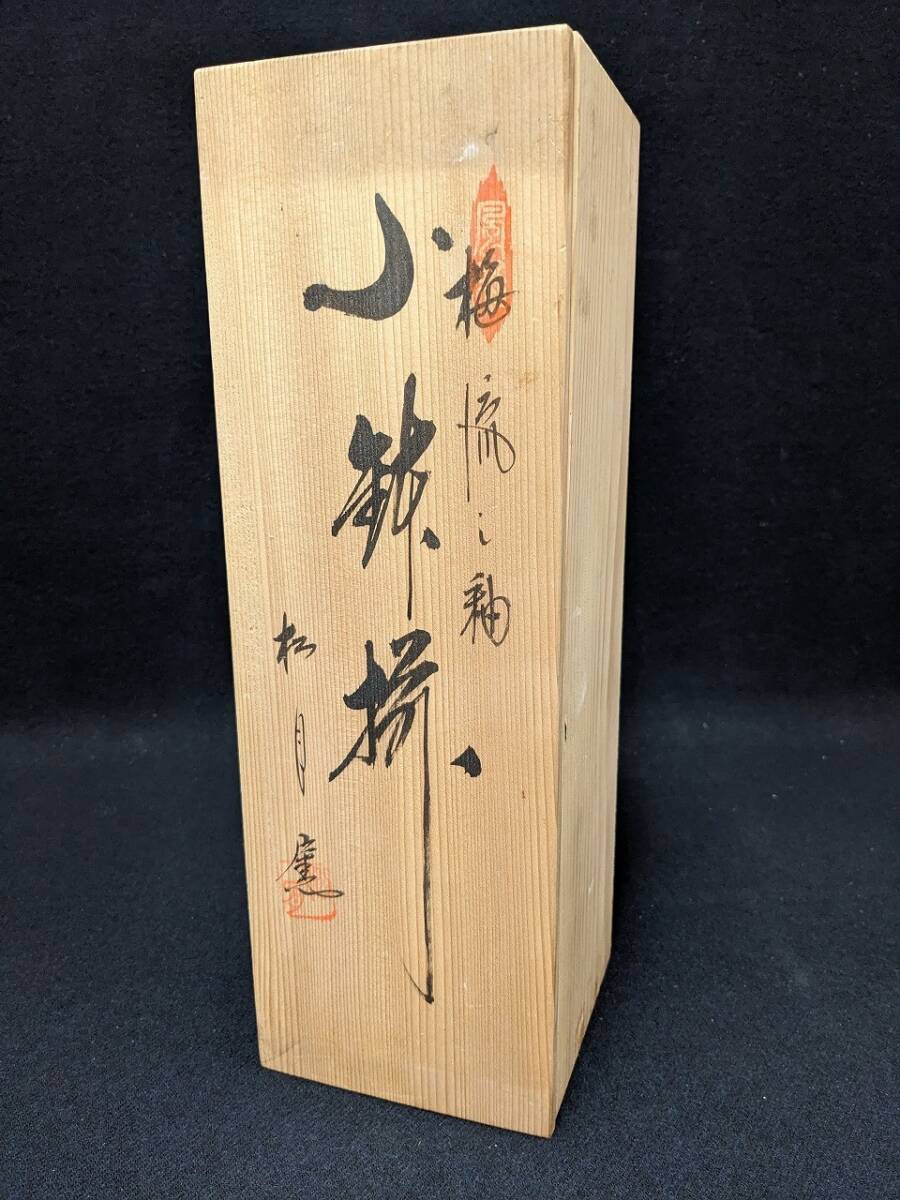 梅流し釉
小鉢揃
松月窯